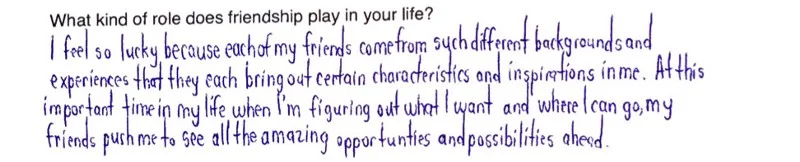 What kind of role does friendship play in your life?
I feel so lucky because each of my friends come from such different backgrounds and
experiences that they each bring out certain characteristics and inspirations in me. At this
important time in my life when I'm figuring out what I want and where I can go, my
friends push me to see all the amazing opportunties and possibilities ahead.